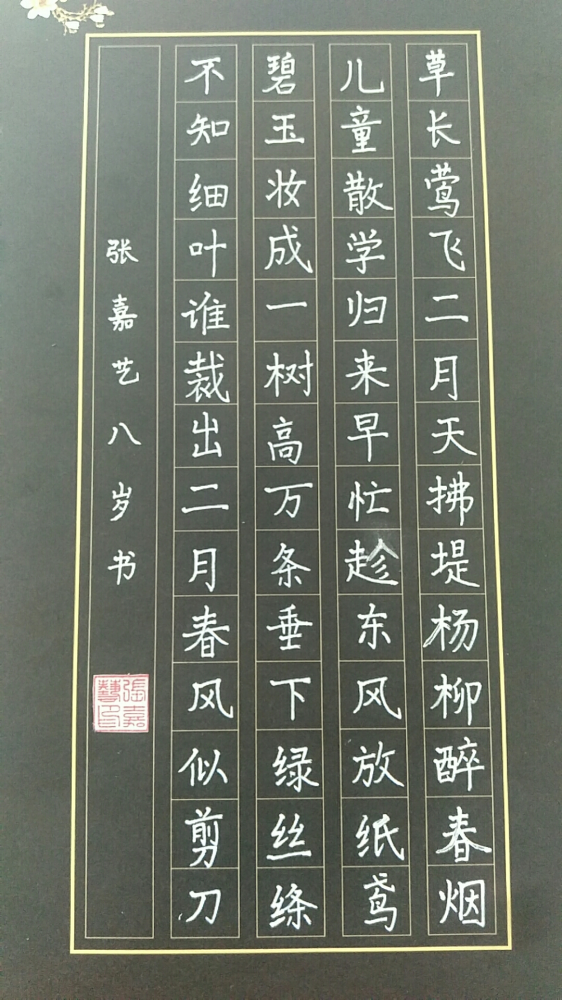 草长莺飞二月天拂堤杨柳醉春烟
儿童散学归来早忙趁东风放纸鸢
碧玉妆成一树高万条垂下绿丝绦
不知细叶谁裁出二月春风似剪刀
张嘉艺八岁书
張嘉藝印